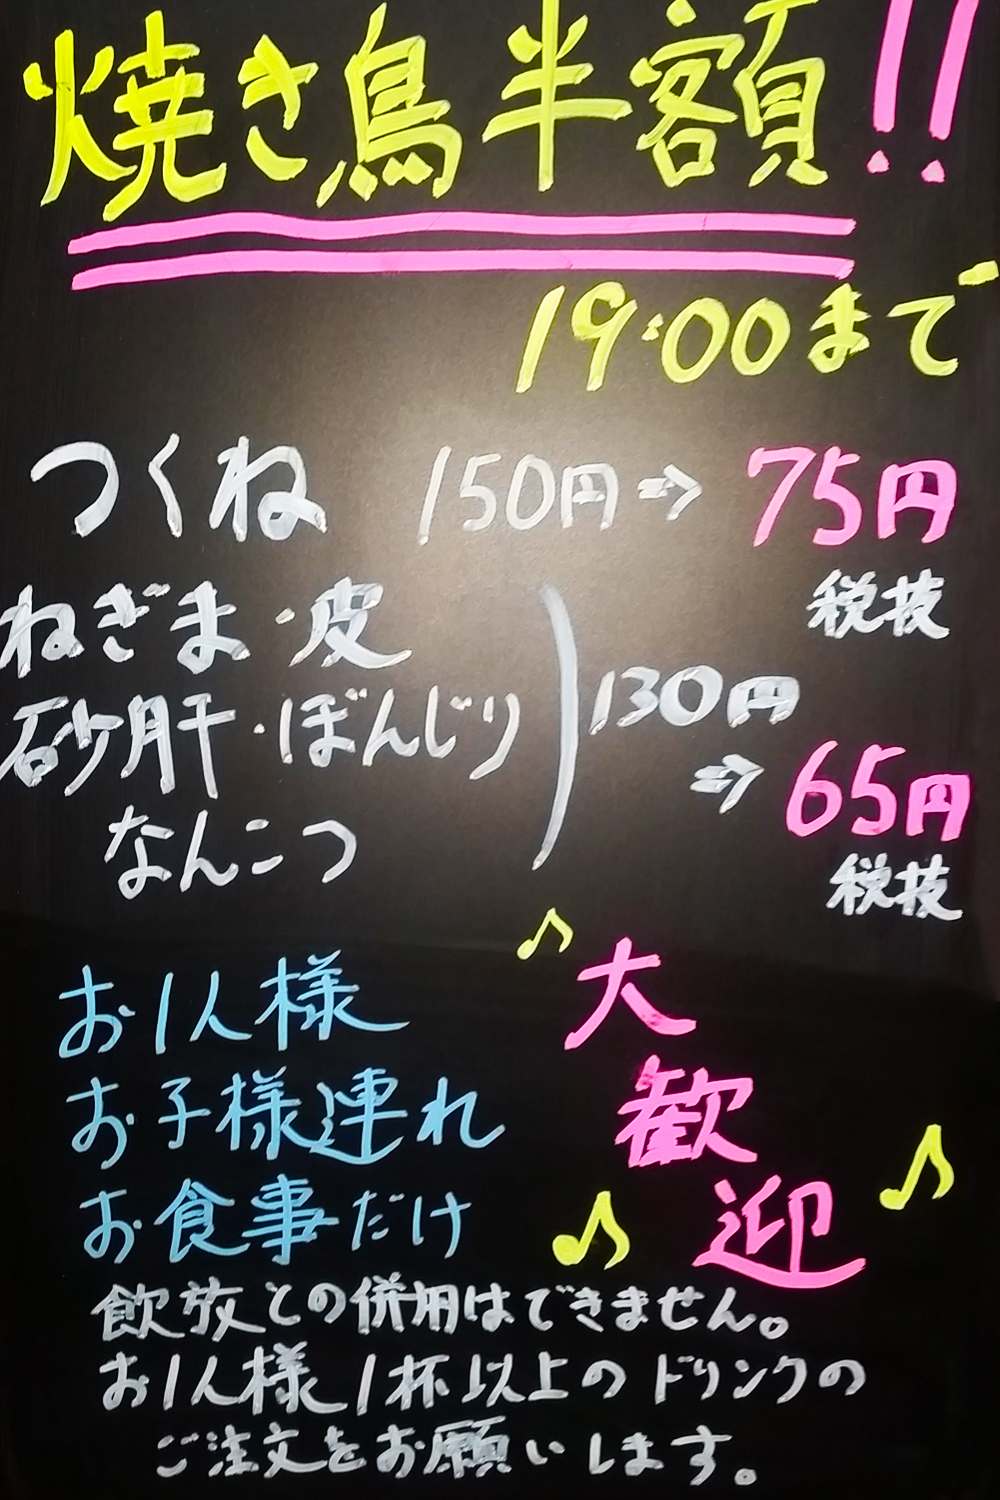 焼き鳥半額!!
19:00まで
つくね 150円⇒75円
税抜
ねぎま・皮
砂肝・ぼんじり
なんこつ
130円
⇒65円
税抜
お1人様
お子様連れ
お食事だけ
♪大歓迎♪♪
飲放との併用はできません。
お1人様1杯以上のドリンクの
ご注文をお願いします。